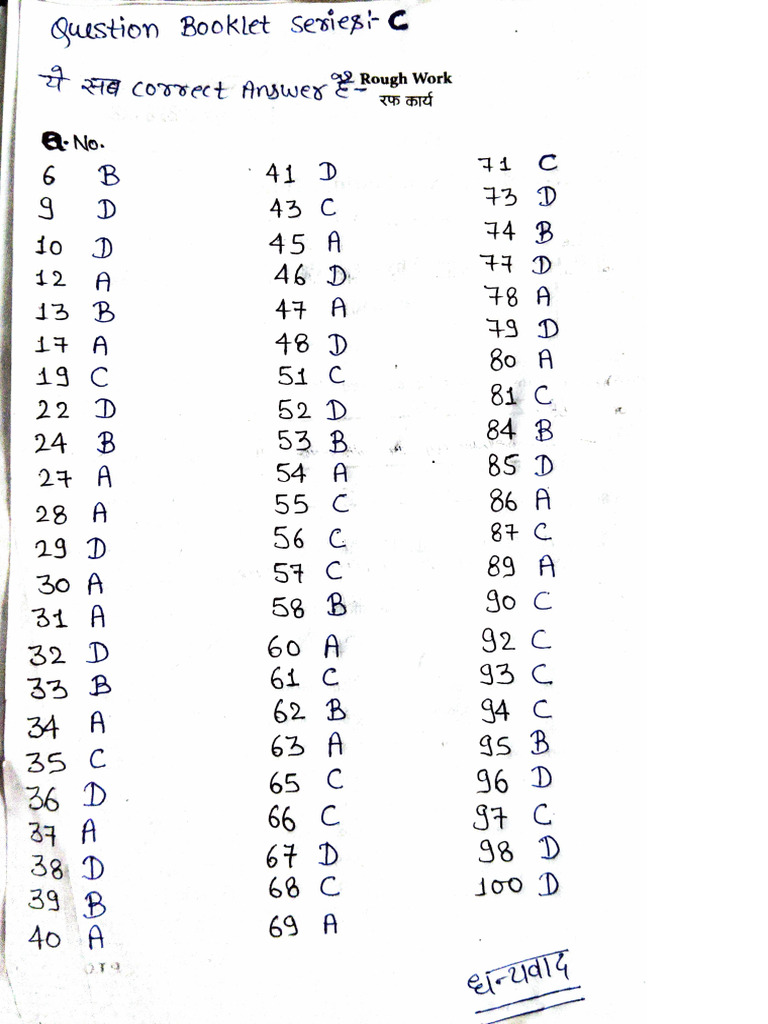 Question Booklet Series:- C
ये सब correct Answer है-
92 Rough Work
रफ कार्य
Q. No.
6 B
9 D
10 D
12 A
13 B
17 A
19 C
22 D
24 B
27 A
28 A
29 D
30 A
31 A
32 D
33 B
34 A
35 C
36 D
37 A
38 D
39 B
40 A
41 D
43 C
45 A
46 D
47 A
48 D
51 C
52 D
53 B
54 A
55 C
56 C
57 C
58 B
60 A
61 C
62 B
63 A
65 C
66 C
67 D
68 C
69 A
71 C
73 D
74 B
77 D
78 A
79 D
80 A
81 C
84 B
85 D
86 A
87 C
89 A
90 C
92 C
93 C
94 C
95 B
96 D
97 C
98 D
100 D
धन्यवाद